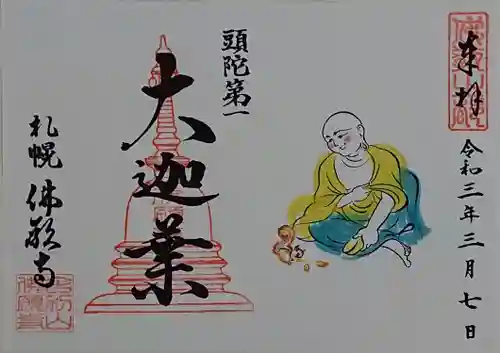 奉拝
令和三年三月七日
頭陀第一
大迦葉
札幌
佛願寺